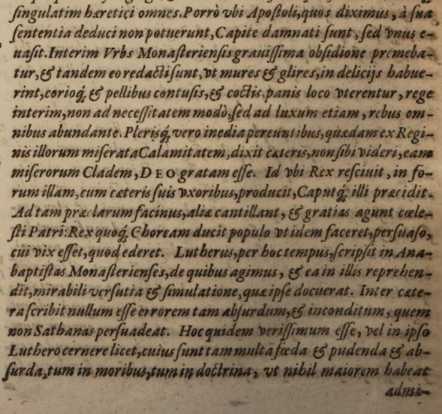 singulatim hæretici omnes. Porrò vbi Apostoli, quos diximus, à sua
sententia deduci non potuerunt, Capite damnati sunt, sed vnus e-
uasit. Interim Vrbs Monasteriensis grauissima obsidione premeba-
tur, & tandem eo redacti sunt, vt mures & glires, in delicijs habue-
rint, corioq́; & pellibus contusis, & coctis, panis loco vterentur, rege
interim, non ad necessitatem modò, sed ad luxum etiam, rebus om-
nibus abundante. Plerisq́; vero inedia pereuntibus, quædam ex Regi-
nis illorum miserata Calamitatem, dixit cæteris, non sibi videri, eam
miserorum Cladem, DEO gratam esse. Id vbi Rex resciuit, in fo-
rum illam, cum cæteris suis vxoribus, producit, Caputq́; illi præcidit.
Ad tam præclarum facinus, aliæ cantillant, & gratias agunt cœle-
sti Patri: Rex quoq́; Choream ducit populo vt idem faceret, persuaso,
cui vix esset, quod ederet. Lutherus, per hoc tempus, scripsit in Ana-
baptistas Monasterienses, de quibus agimus, & ea in illis reprehen-
dit, mirabili versutia & simulatione, quæ ipse docuerat. Inter cæte-
ra scribit nullum esse errorem tam absurdum, & inconditum, quem
non Sathanas persuadeat. Hoc quidem verissimum esse, vel in ipso
Luthero cernere licet, cuius sunt tam multa fœda & pudenda & ab-
surda, tum in moribus, tum in doctrina, vt nihil maiorem habeat
admi-